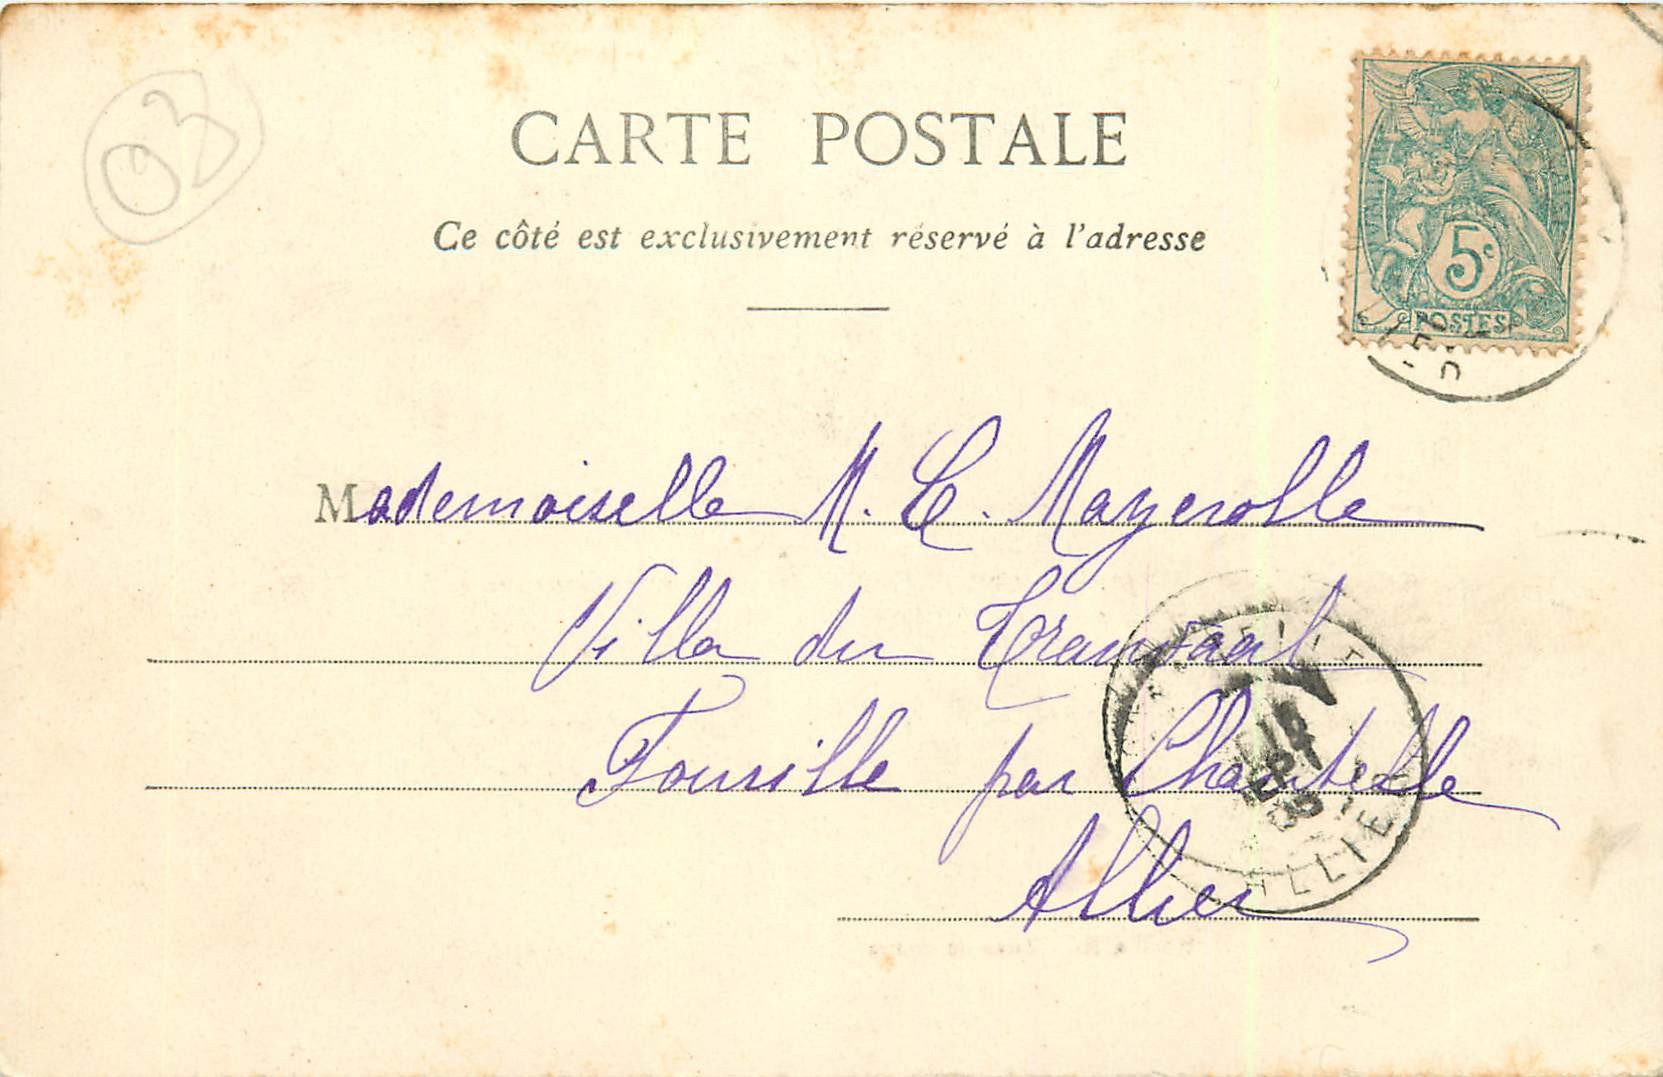 03
CARTE POSTALE
Ce côté est exclusivement réservé à l'adresse
5c
POSTES
Mademoiselle M. C. Mayerolle
Villa du Transvaal
Fourille par Chantelle
Allier
ALLIER